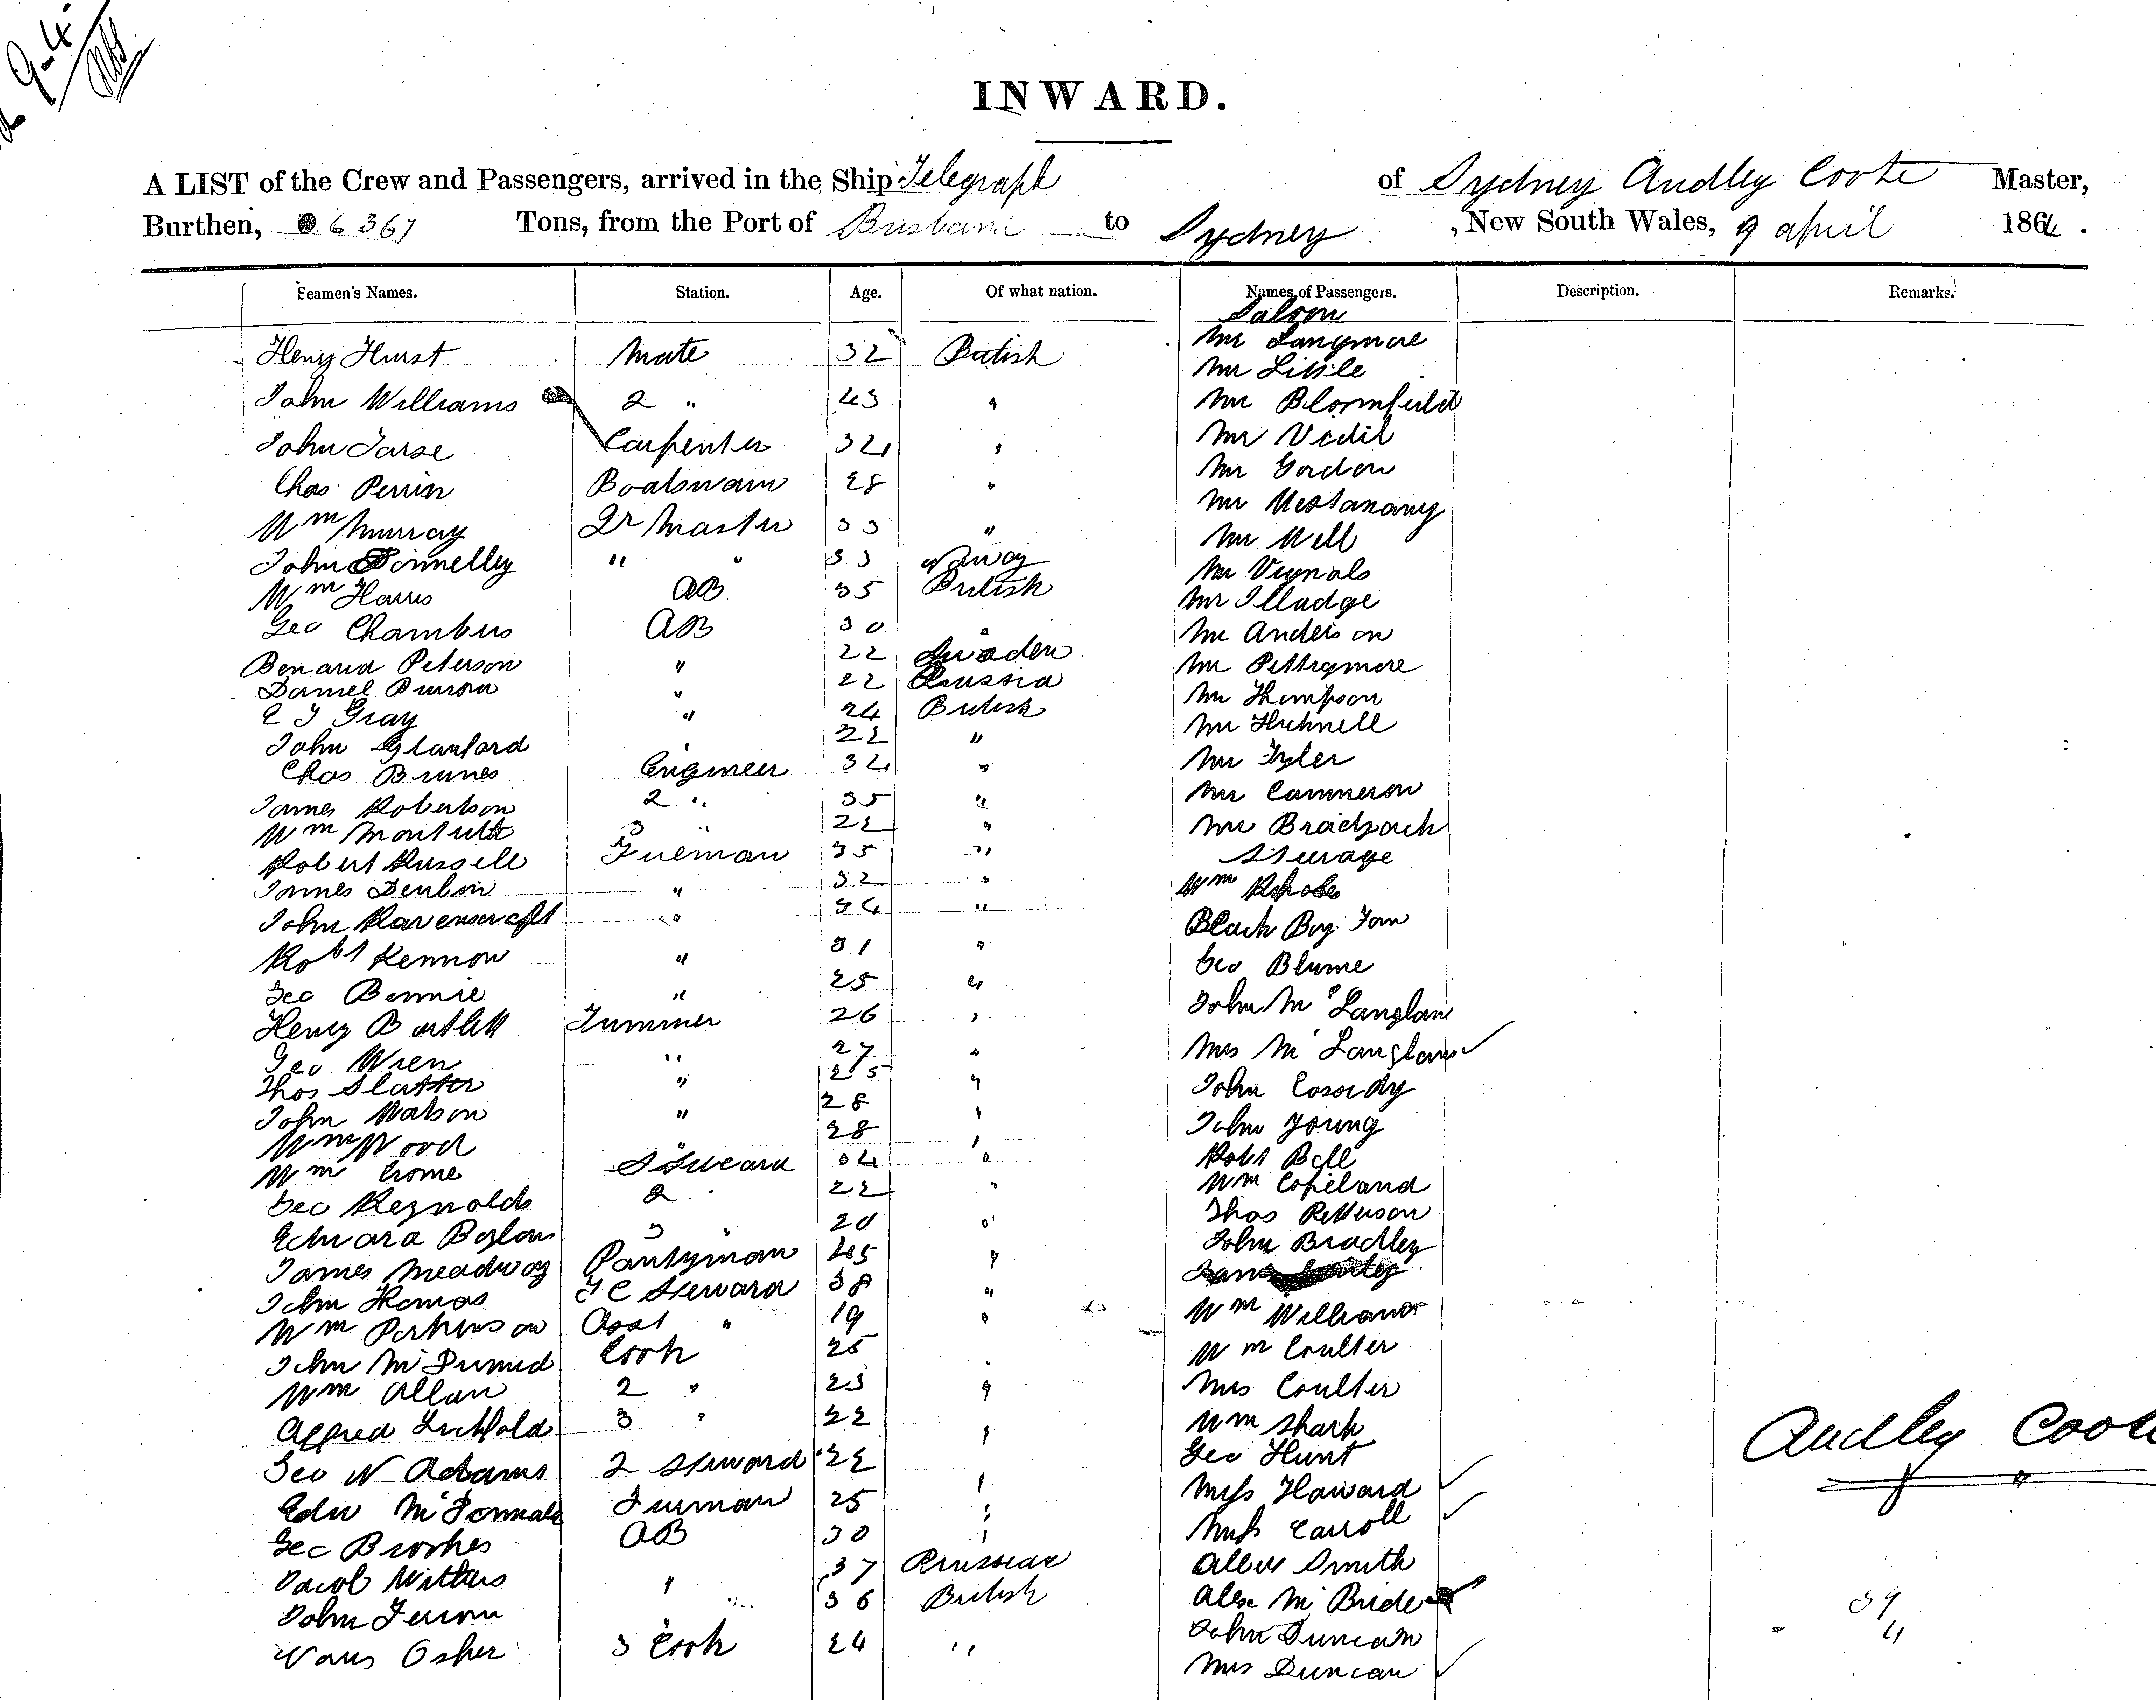 9-4
INWARD.
A LIST of the Crew and Passengers, arrived in the Ship Telegraph of Sydney Audley Coote Master,
Burthen, 367 Tons, from the Port of Brisbane to Sydney, New South Wales, 9 april 1864.
Seamen's Names. Station. Age. Of what nation. Names of Passengers. Description. Remarks.
Saloon
Henry Hurst Mate 32 British Mr Langmore
Mr Little
John Williams 2 " 43 " Mr Bloomfield
John Tarse Carpenter 34 " Mr Vedil
Chas Perrin Boatswain 28 " Mr Gordon
Wm Murray Qr Master 33 " Mr
John Donnelly " " 33 Mr Well
Wm Harris AB 35 British Mr Vignols
Geo Chambers AB 30 " Mr Illadge
Benard Peterson " 22 Sweden Mr Anderson
Daniel " 22 Russia Mr Pettigmore
E J Gray " 24 British Mr Thompson
John Glanford " 22 " Mr Huchnell
Chas Brunes Engineer 34 " Mr Tyler
James Robertson 2 " 35 " Mr Cammeron
Wm Montieth 3 " 22 " Mr
Robert Russell Fireman 35 " Steerage
James Denton " 32 " Wm
John Ravenscroft " 34 " Black Boy Tom
Robt Kennon " 31 " Geo Blume
Geo Bennie " 25 " John Mc Langlan
Henry Bartlett Trimmer 26 "
Geo Wren " 27 " Mrs Mc Langlan
Thos Slatter " 25 " John Cassidy
John Watson " 28 " John Young
Wm Wood " 28 " Robt Bell
Wm Crome Steward 34 " Wm Copeland
Geo Reynolds 2 " 22 " Thos Petterson
Edward Boylan 3 " 20 " John Bradley
James Meadway Pantryman 45 "
John Thomas F C Steward 38 " Wm Williams
Wm Parkinson Asst " 19 " Wm Coulter
John Mc Diarmid Cook 25 " Mrs Coulter
Wm Allan 2 " 23 " Wm Shark
Alfred Lichfold 3 " 22 " Geo Hunt
Geo W Adams 2 Steward 22 " Miss Haward
Edw Mc Fireman 25 " Miss Carroll
Geo Brookes AB 30 " Albert Smith
Jacob Withers " 37 Prussian Alex Mc Bride
John Ferron " 36 British John Duncan
Osher 3 Cook 24 " Mrs Duncan
Audley Coote
39
4